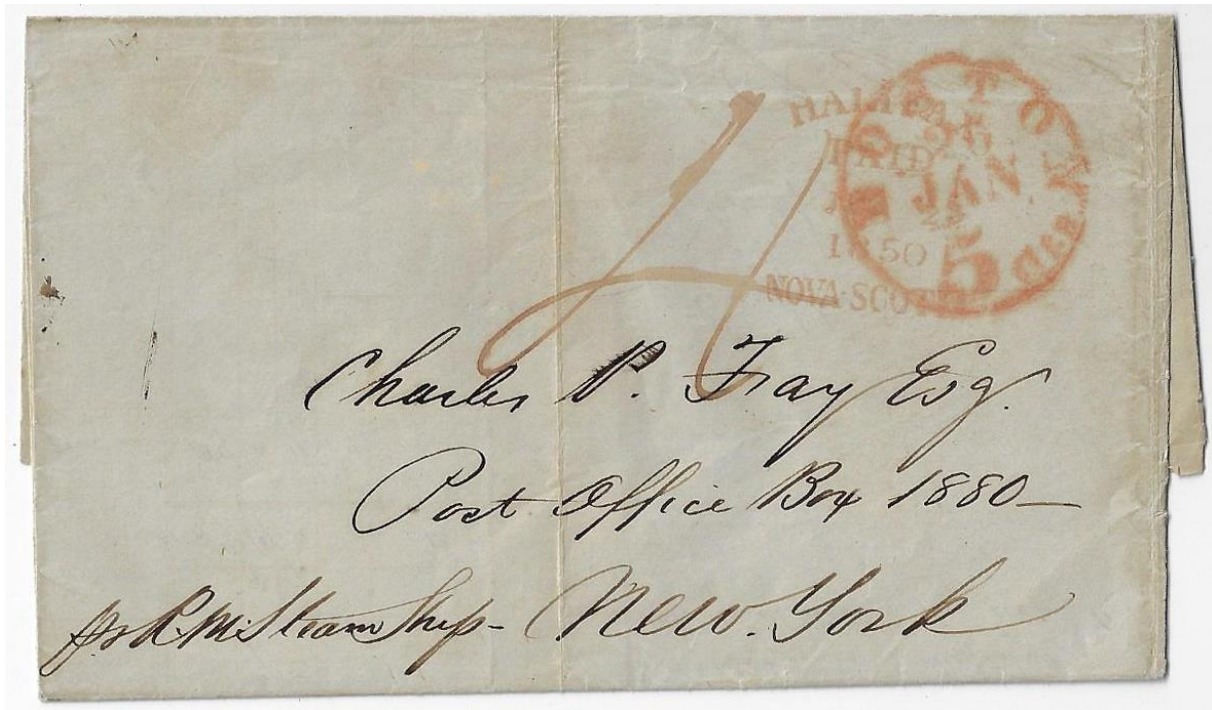 HALIFAX
PAID
1850
NOVA-SCOTIA
BOSTON
JAN
5
4
Charles P. Fay Esq.
Post Office Box 1880—
pr R. M. Steam Ship - New. York